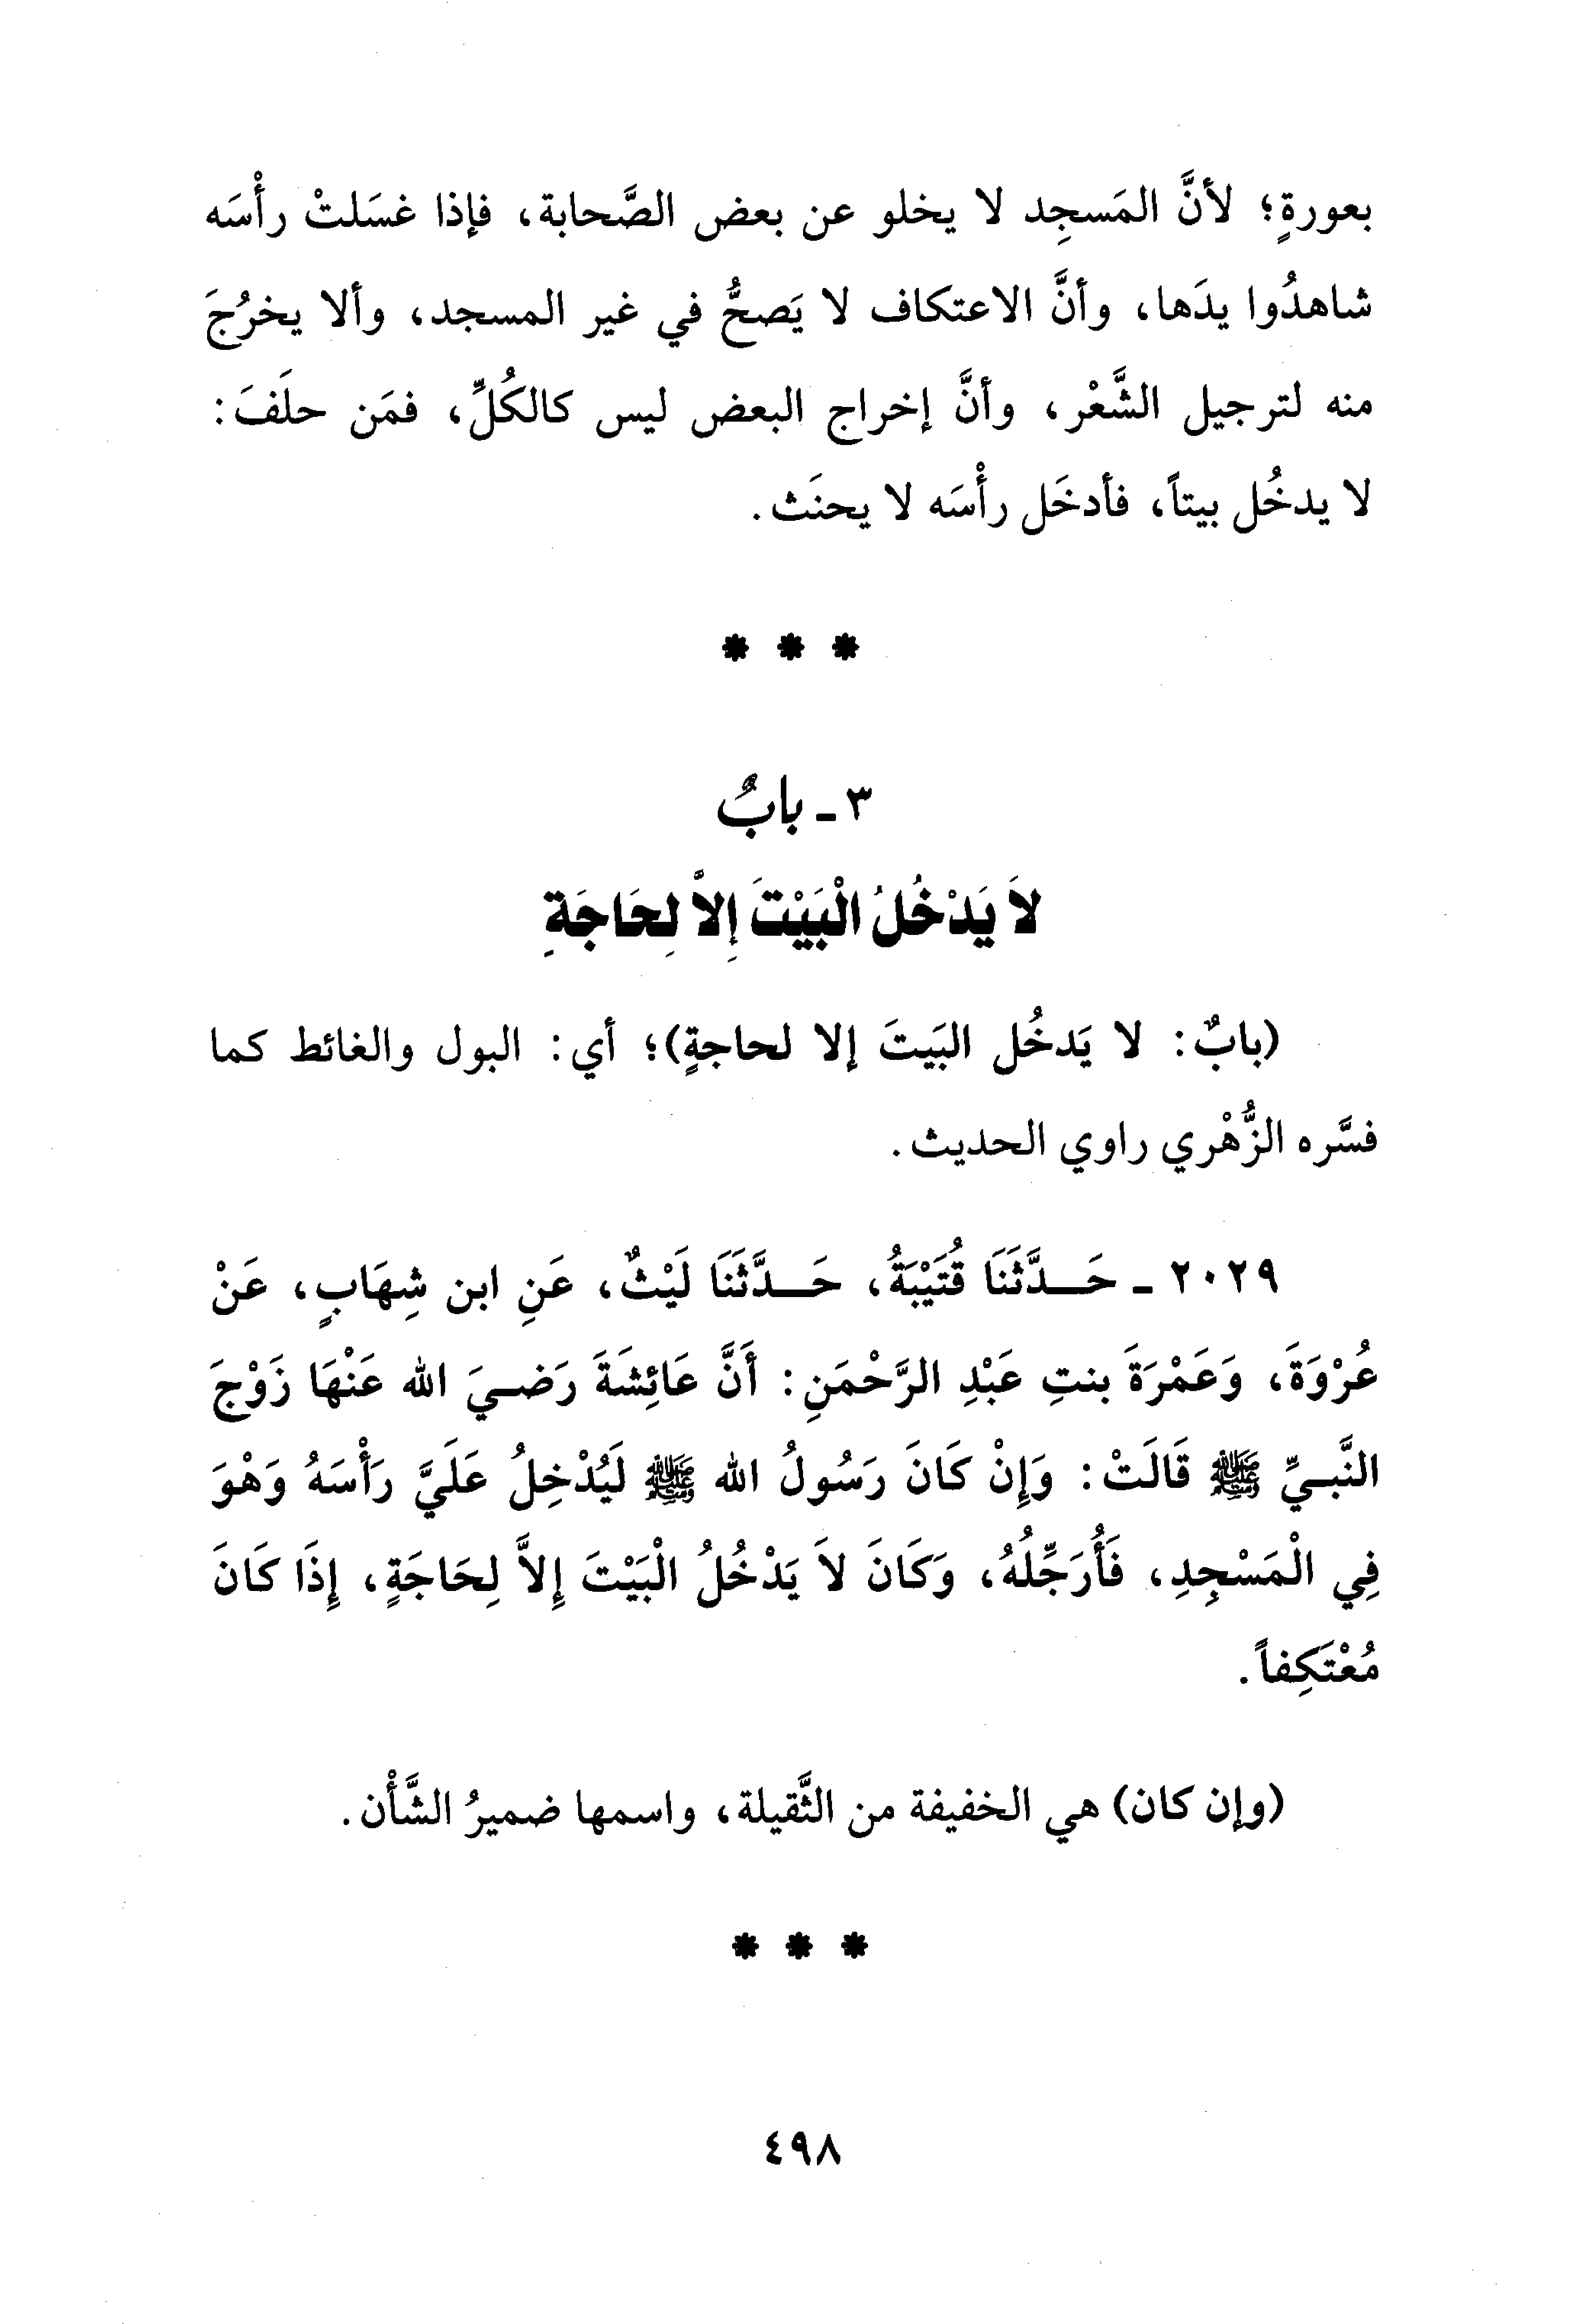 بعورةٍ؛ لأنَّ المَسجِد لا يخلو عن بعض الصَّحابة، فإذا غسَلتْ رأْسَه
شاهدُوا يدَها، وأنَّ الاعتكاف لا يَصحُّ في غير المسجد، وألا يخرُجَ
منه لترجيل الشَّعْر، وأنَّ إخراج البعض ليس كالكُلِّ، فمَن حلَفَ:
لا يدخُل بيتاً، فأدخَل رأْسَه لا يحنَث.
* * *
٣ - بابٌ
لاَ يَدْخُلُ الْبَيْتَ إِلاَّ لِحَاجَةٍ
(بابٌ: لا يَدخُل البَيتَ إلا لحاجةٍ)؛ أي: البول والغائط كما
فسَّره الزُّهْري راوي الحديث.
٢٠٢٩ - حَدَّثَنَا قُتَيْبَةُ، حَدَّثَنَا لَيْثٌ، عَنِ ابن شِهَابٍ، عَنْ
عُرْوَةَ، وَعَمْرَةَ بنتِ عَبْدِ الرَّحْمَنِ: أَنَّ عَائِشَةَ رَضيَ الله عَنْهَا زَوْجَ
النَّبيِّ ﷺ قَالَتْ: وَإِنْ كَانَ رَسُولُ الله ﷺ لَيُدْخِلُ عَلَيَّ رَأْسَهُ وَهْوَ
فِي الْمَسْجِدِ، فَأُرَجِّلُهُ، وَكَانَ لاَ يَدْخُلُ الْبَيْتَ إِلاَّ لِحَاجَةٍ، إِذَا كَانَ
مُعْتَكِفاً.
(وإن كان) هي الخفيفة من الثَّقيلة، واسمها ضميرُ الشَّأْن.
* * *
٤٩٨